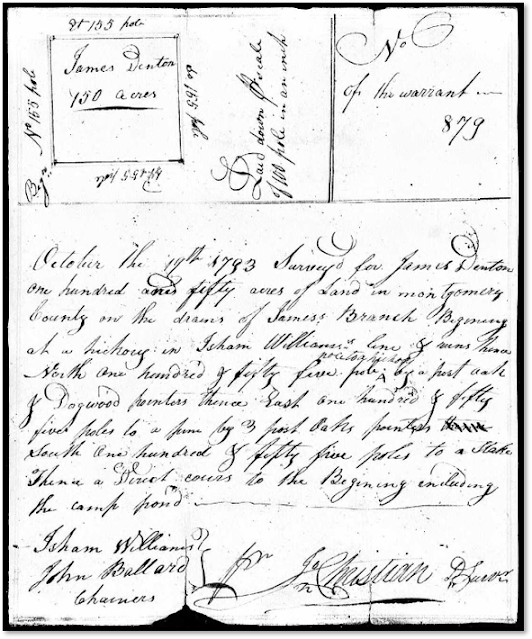 Et 155 pole
James Denton
150 acres
No 155 pole
So 155 pole
Wt 155 pole
Beg.
Laid down pr scale
of 100 pole in an inch
No
of the warrant
879
October the 19th 1793 Survey'd for James Denton
one hundred and fifty acres of Land in montgomery
County on the drains of Jameses Branch Begining
at a hickory in Isham Williams's line & runs thence
North one hundred & fifty five pole by a post oak
& Dogwood pointers thence East one hundred & fifty
five poles to a pine by 3 post Oaks pointers
South One hundred & fifty five poles to a Stake
Thence a Direct cours to the Begining including
the camp pond
Isham Williams
John Ballard
Chainers
pr Jno Christian D. Survr